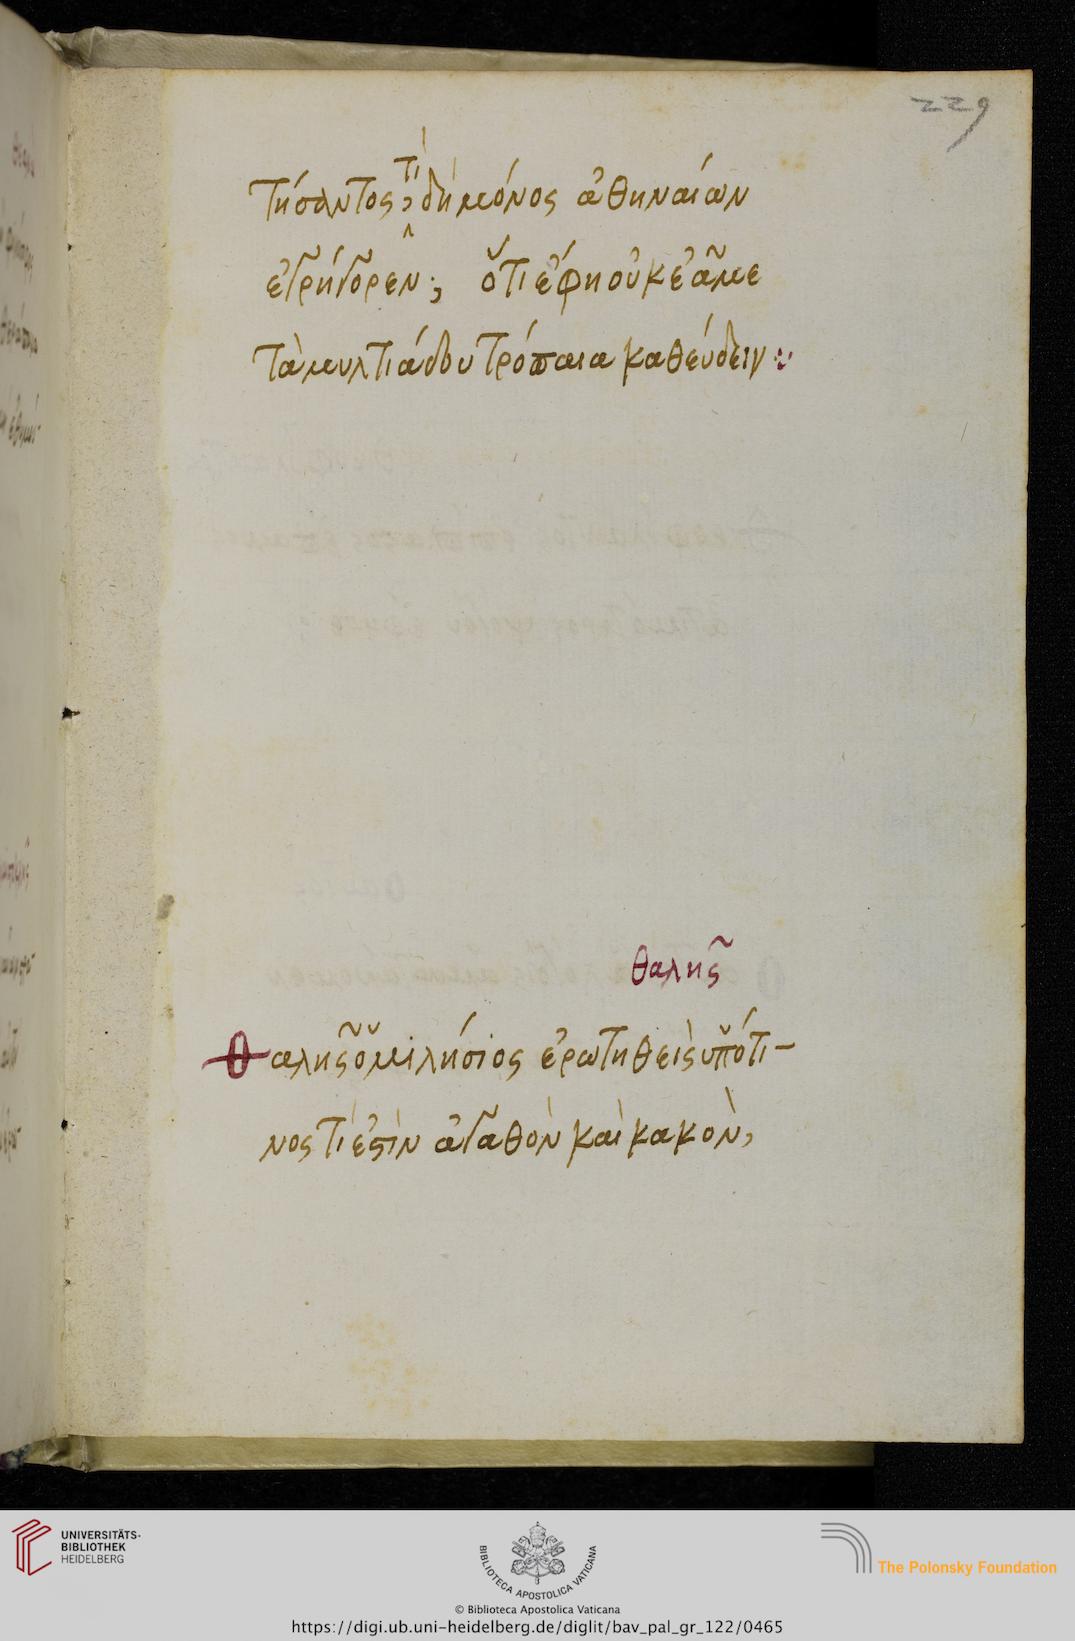 229
τήσαντος, τί δὴ μόνος ἀθηναίων
ἐγρήγορεν; ὅτι ἔφη οὐκ ἐᾶ με
τὰ μυλτιάδου τρόπαια καθεύδειν:
θαλῆς
Θαλῆς ὁ μιλήσιος ἐρωτηθεὶς ὑπό τι-
νος τί ἐστὶν ἀγαθὸν καὶ κακὸν,
UNIVERSITÄTS-
BIBLIOTHEK
HEIDELBERG
BIBLIOTECA APOSTOLICA VATICANA
The Polonsky Foundation
© Biblioteca Apostolica Vaticana
https://digi.ub.uni-heidelberg.de/diglit/bav_pal_gr_122/0465